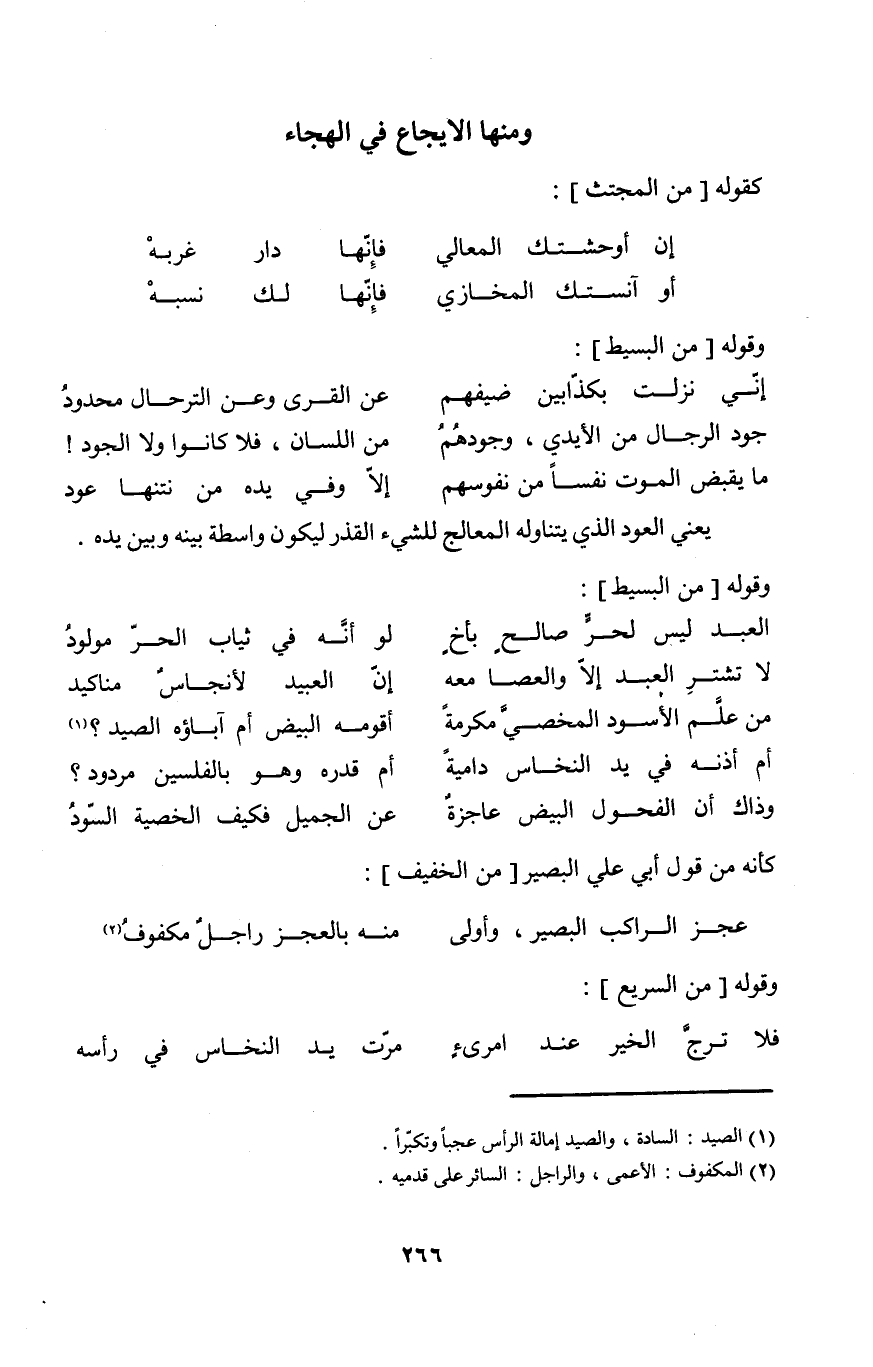 ومنها الايجاع في الهجاء
كقوله [ من المجتث ] :
إن أوحشتك المعالي فإنّها دار غربهْ
أو آنستك المخازي فإنّها لك نسبهْ
وقوله [ من البسيط ] :
إنّي نزلت بكذّابين ضيفهم عن القرى وعن الترحال محدودُ
جود الرجال من الأيدي ، وجودهُمُ من اللسان ، فلا كانوا ولا الجود !
ما يقبض الموت نفساً من نفوسهم إلاّ وفي يده من نتنها عود
يعني العود الذي يتناوله المعالج للشيء القذر ليكون واسطة بينه وبين يده .
وقوله [ من البسيط ] :
العبد ليس لحرٍّ صالحٍ بأخٍ لو أنَّه في ثياب الحرّ مولودُ
لا تشترِ العبد إلاّ والعصا معه إنّ العبيد لأنجاسٌ مناكيد
من علَّم الأسود المخصيَّ مكرمةً أقومه البيض أم آباؤه الصيد ؟(١)
أم أذنه في يد النخاس داميةً أم قدره وهو بالفلسين مردود ؟
وذاك أن الفحول البيض عاجزةٌ عن الجميل فكيف الخصية السّودُ
كأنه من قول أبي علي البصير [ من الخفيف ] :
عجز الراكب البصير ، وأولى منه بالعجز راجلٌ مكفوفُ(٢)
وقوله [ من السريع ] :
فلا ترجَّ الخير عند امرىءٍ مرّت يد النخاس في رأسه
(١) الصيد : السادة ، والصيد إمالة الرأس عجباً وتكبّراً .
(٢) المكفوف : الأعمى ، والراجل : السائر على قدميه .
٢٦٦